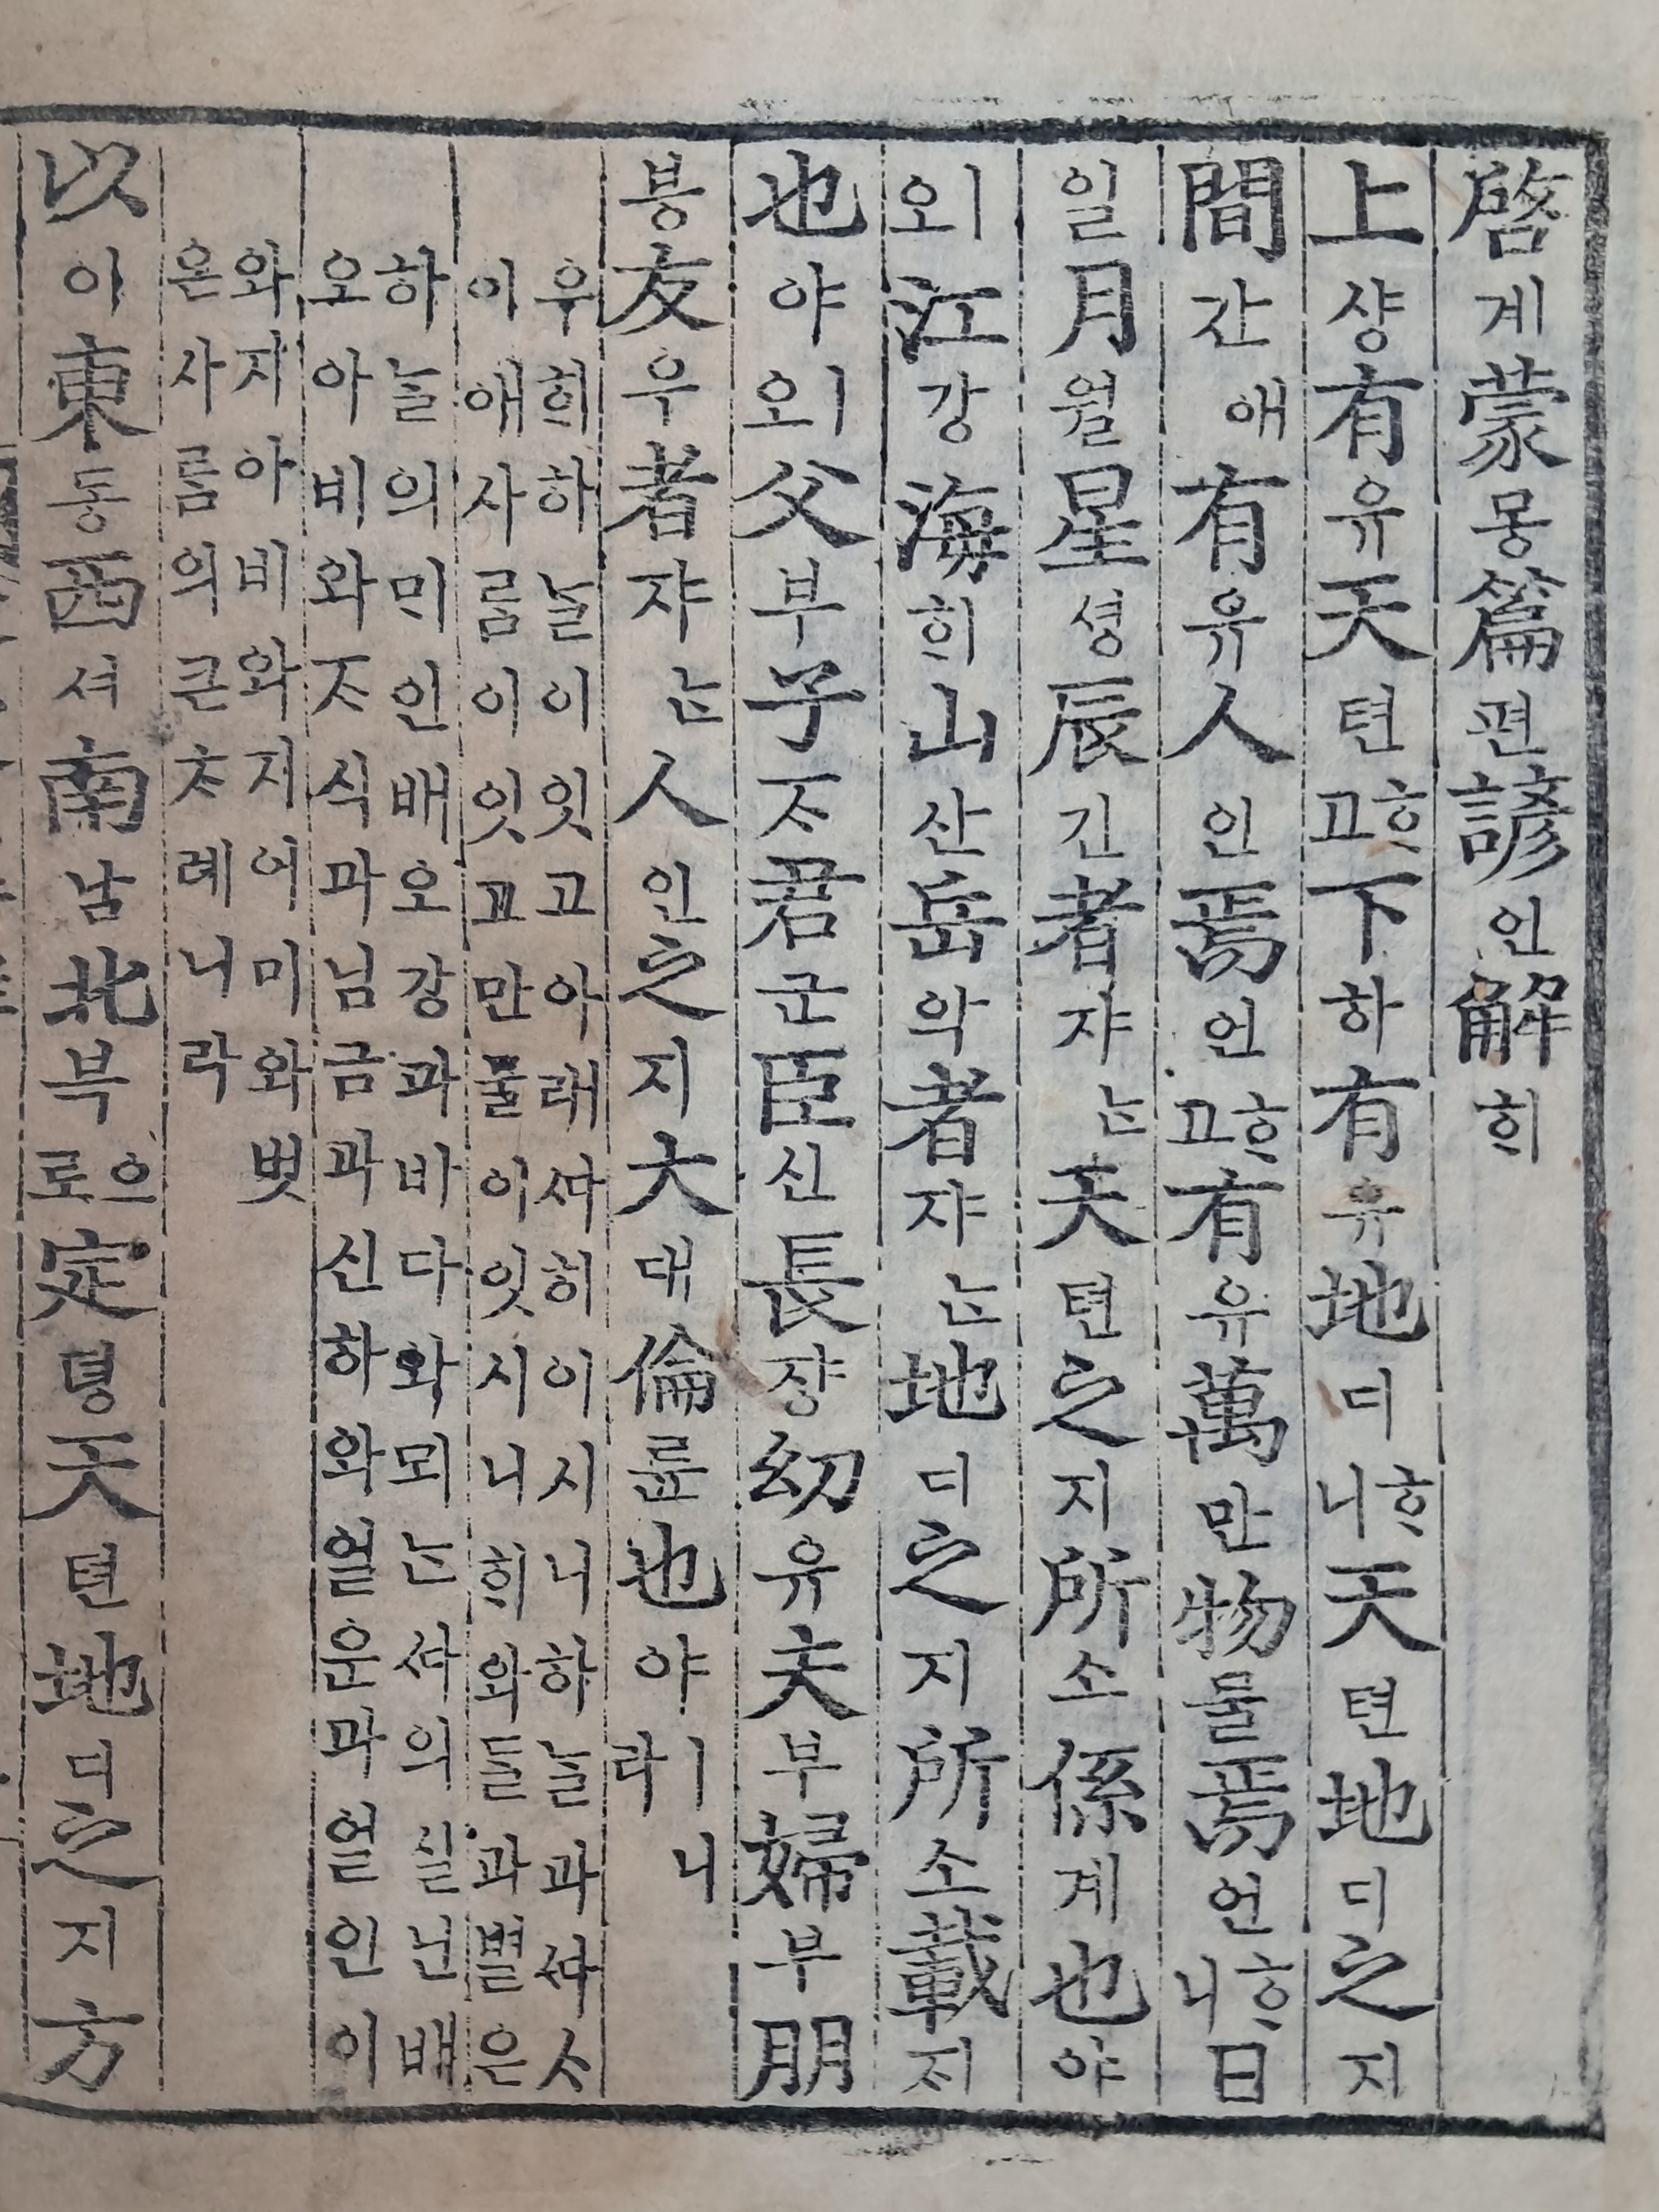 啓계蒙몽篇편諺언解ᄒᆡ
上샹有유天텬ᄒᆞ고下하有유地디ᄒᆞ니天텬地디之지
間간애有유人인焉언ᄒᆞ고有유萬만物물焉언ᄒᆞ니日
일月월星셩辰긴者쟈ᄂᆞᆫ天텬之지所소係계也야
ㅣ오江강海ᄒᆡ山산岳악者쟈ᄂᆞᆫ地디之지所소載ᄌᆡ
也야ㅣ오父부子ᄌᆞ君군臣신長쟝幼유夫부婦부朋
붕友우者쟈ᄂᆞᆫ人인之지大대倫륜也야ㅣ니라
우ᄒᆡ하ᄂᆞᆯ이잇고아래ᄯᅡ히이시니하ᄂᆞᆯ과ᄯᅡᄉᆞ
이애사ᄅᆞᆷ이잇고만물이잇시니ᄒᆡ와ᄃᆞᆯ과별은
하ᄂᆞᆯ의ᄆᆡ인배오강과바다와뫼ᄂᆞᆫᄯᅡ의실닌배
오아비와ᄌᆞ식과님금과신하와얼운과얼인이
와지아비와지어미와벗
은사ᄅᆞᆷ의큰ᄎᆞ례니라
以이東동西셔南남北북으로定뎡天텬地디之지方